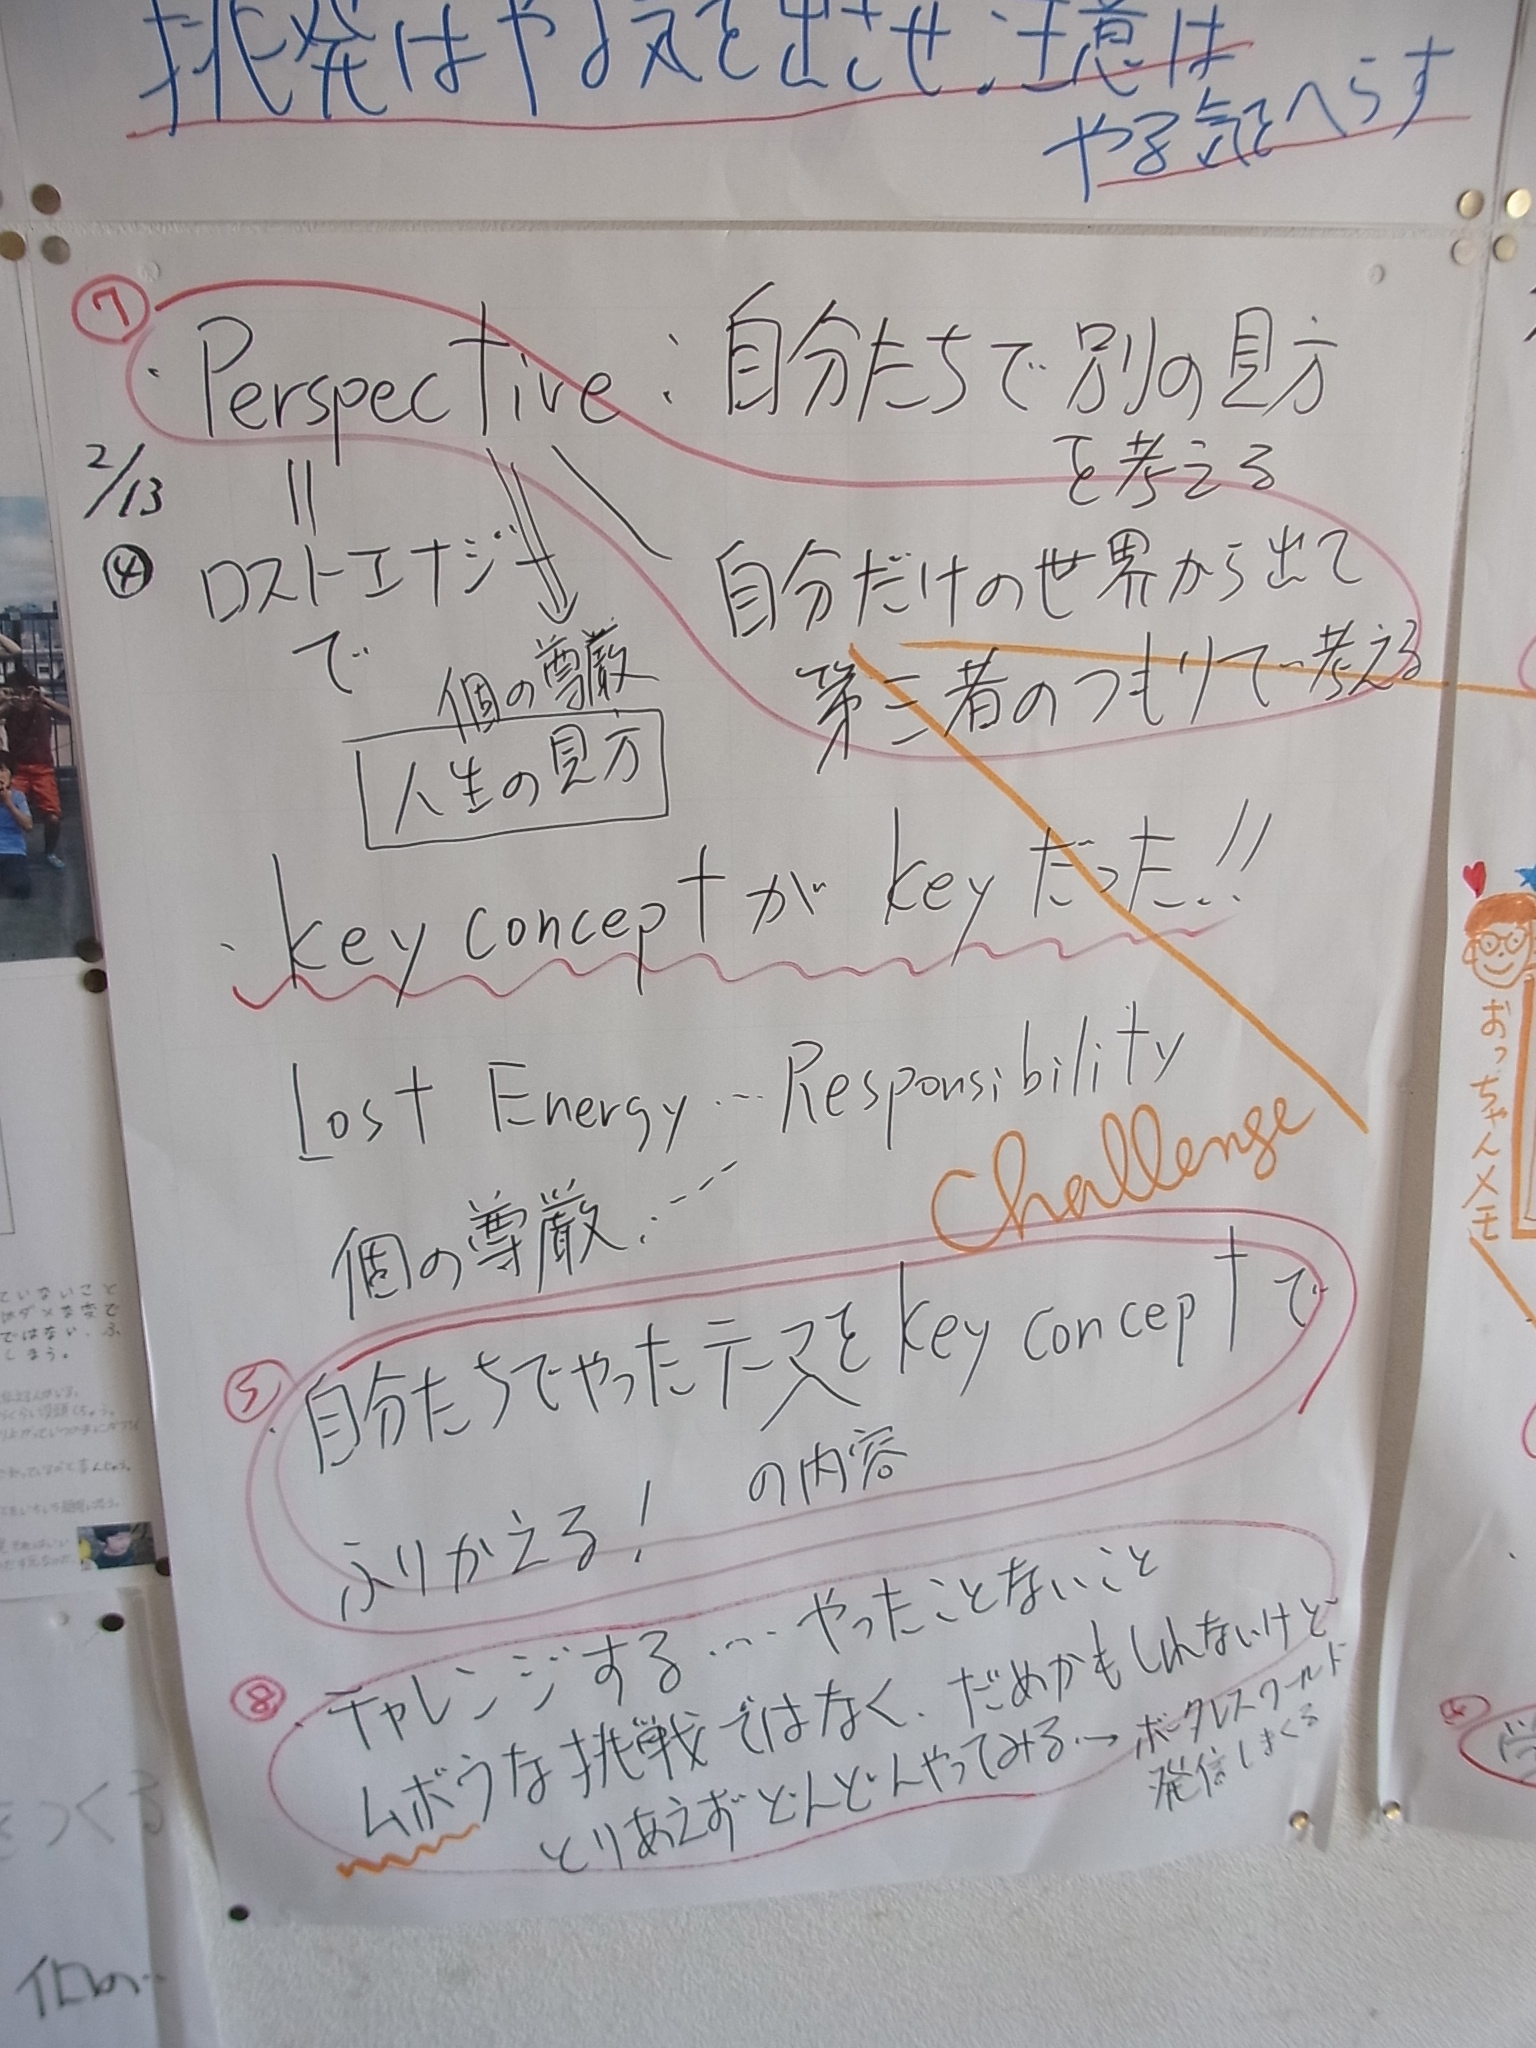 挑発はやる気を出させ注意は
やる気をへらす
⑦
・Perspective:自分たちで別の見方
を考える
2/13
④
ロストエナジー
で
個の尊厳
人生の見方
自分だけの世界から出て
第三者のつもりで考える
・key conceptがkeyだった!!
Lost Energy…Responsibility
個の尊厳
Challenge
⑤
・自分たちでやったテーマをkey conceptで
の内容
ふりかえる!
⑧
・チャレンジする…やったことないこと
ムボウな挑戦ではなく、だめかもしれないけど
とりあえずどんどんやってみる→ボーダレスワールド
発信しまくる
おっちゃんメモ
ていないこと
ではない、ふ
しまう。
をつくる